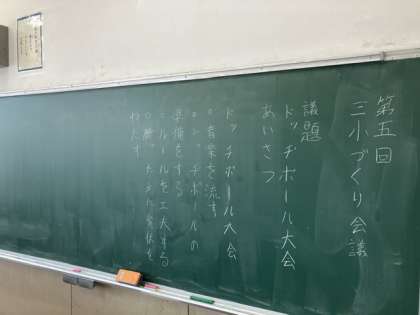 第五回
三小づくり会議
議題
ドッヂボール大会
あいさつ
ドッヂボール大会
○音楽を流す
○ドッヂボールの
準備をする
○ルールを工夫する
○勝ったチームに賞状を
わたす